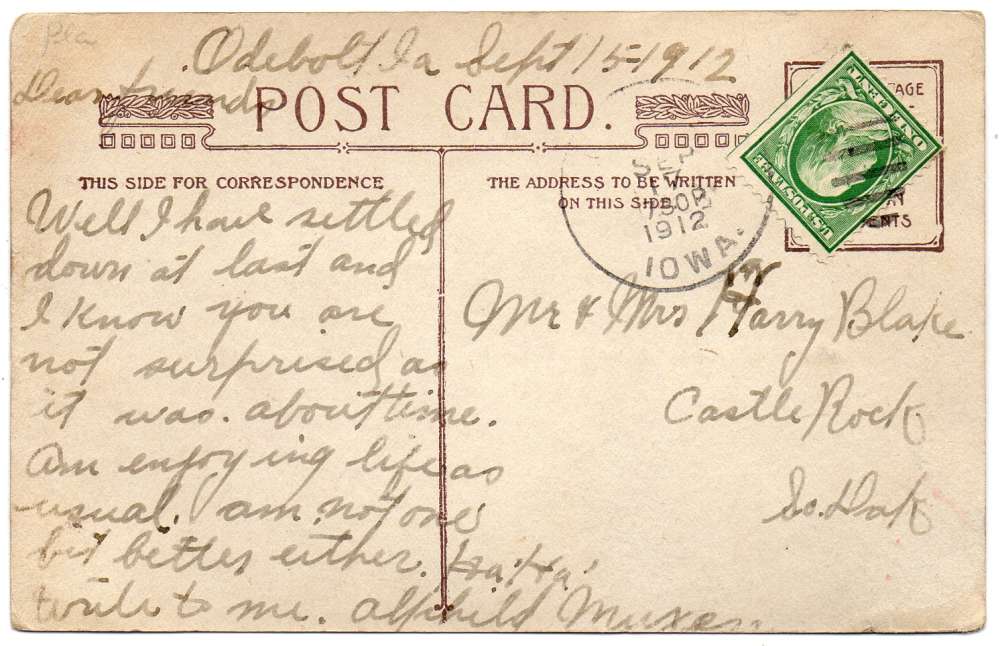 Odebolt Ia Sept 15-1912
Dear friends
POST CARD.
THIS SIDE FOR CORRESPONDENCE
THE ADDRESS TO BE WRITTEN
ON THIS SIDE.
SEP
1912
IOWA.
U.S. POSTAGE
ONE CENT
Well I have settled
down at last and
I know you are
not surprised as
it was. about time.
Am enjoying life as
usual. am not one
bit better either. Ha! Ha!
write to me. Alfhild Muxen
Mr & Mrs Harry Blake
Castle Rock
So. Dak